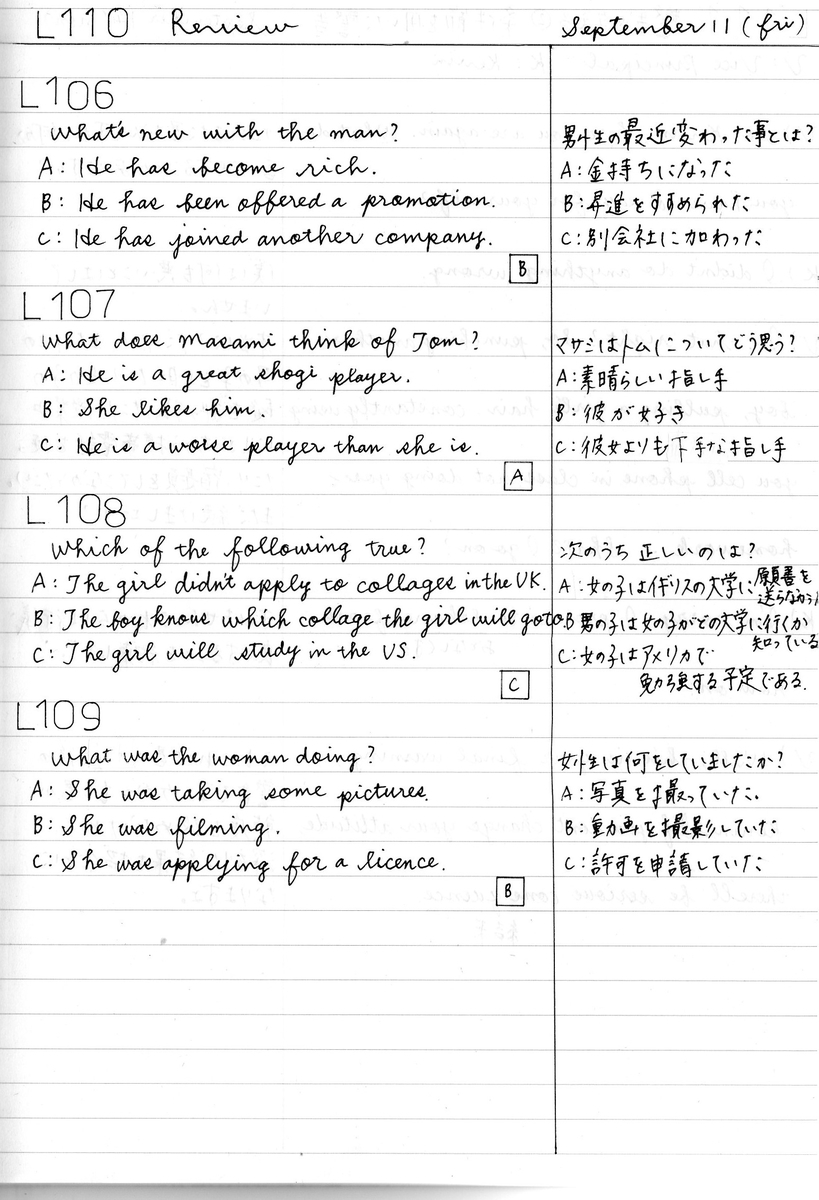 L110 Review
September 11 (fri)
L106
What's new with the man?
男性の最近変わった事とは?
A: He has become rich.
A:金持ちになった
B: He has been offered a promotion.
B:昇進をすすめられた
C: He has joined another company.
C:別会社に加わった
B
L107
What does Masami think of Tom?
マサミはトムについてどう思う?
A: He is a great shogi player.
A:素晴らしい指し手
B: She likes him.
B:彼が好き
C: He is a worse player than she is.
C:彼女よりも下手な指し手
A
L108
Which of the following true?
次のうち正しいのは?
A: The girl didn't apply to collages in the UK.
A:女の子はイギリスの大学に願書を
送らなかった
B: The boy knows which collage the girl will go to.
B男の子は女の子がどの大学に行くか
知っている
C: The girl will study in the US.
C:女の子はアメリカで
勉強する予定である.
C
L109
What was the woman doing?
女性は何をしていましたか?
A: She was taking some pictures.
A:写真を撮っていた.
B: She was filming.
B:動画を撮影していた
C: She was applying for a licence.
C:許可を申請していた
B